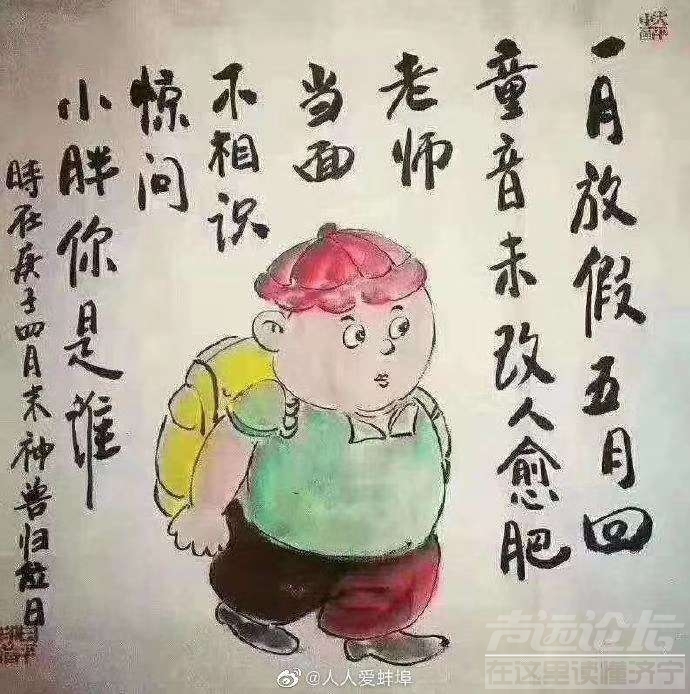 一月放假五月回
童音未改人愈肥
老师
当面
不相识
惊问
小胖你是谁
時在庚子四月末神兽归校日
@人人爱蚌埠
声远论坛
在这里读懂济宁